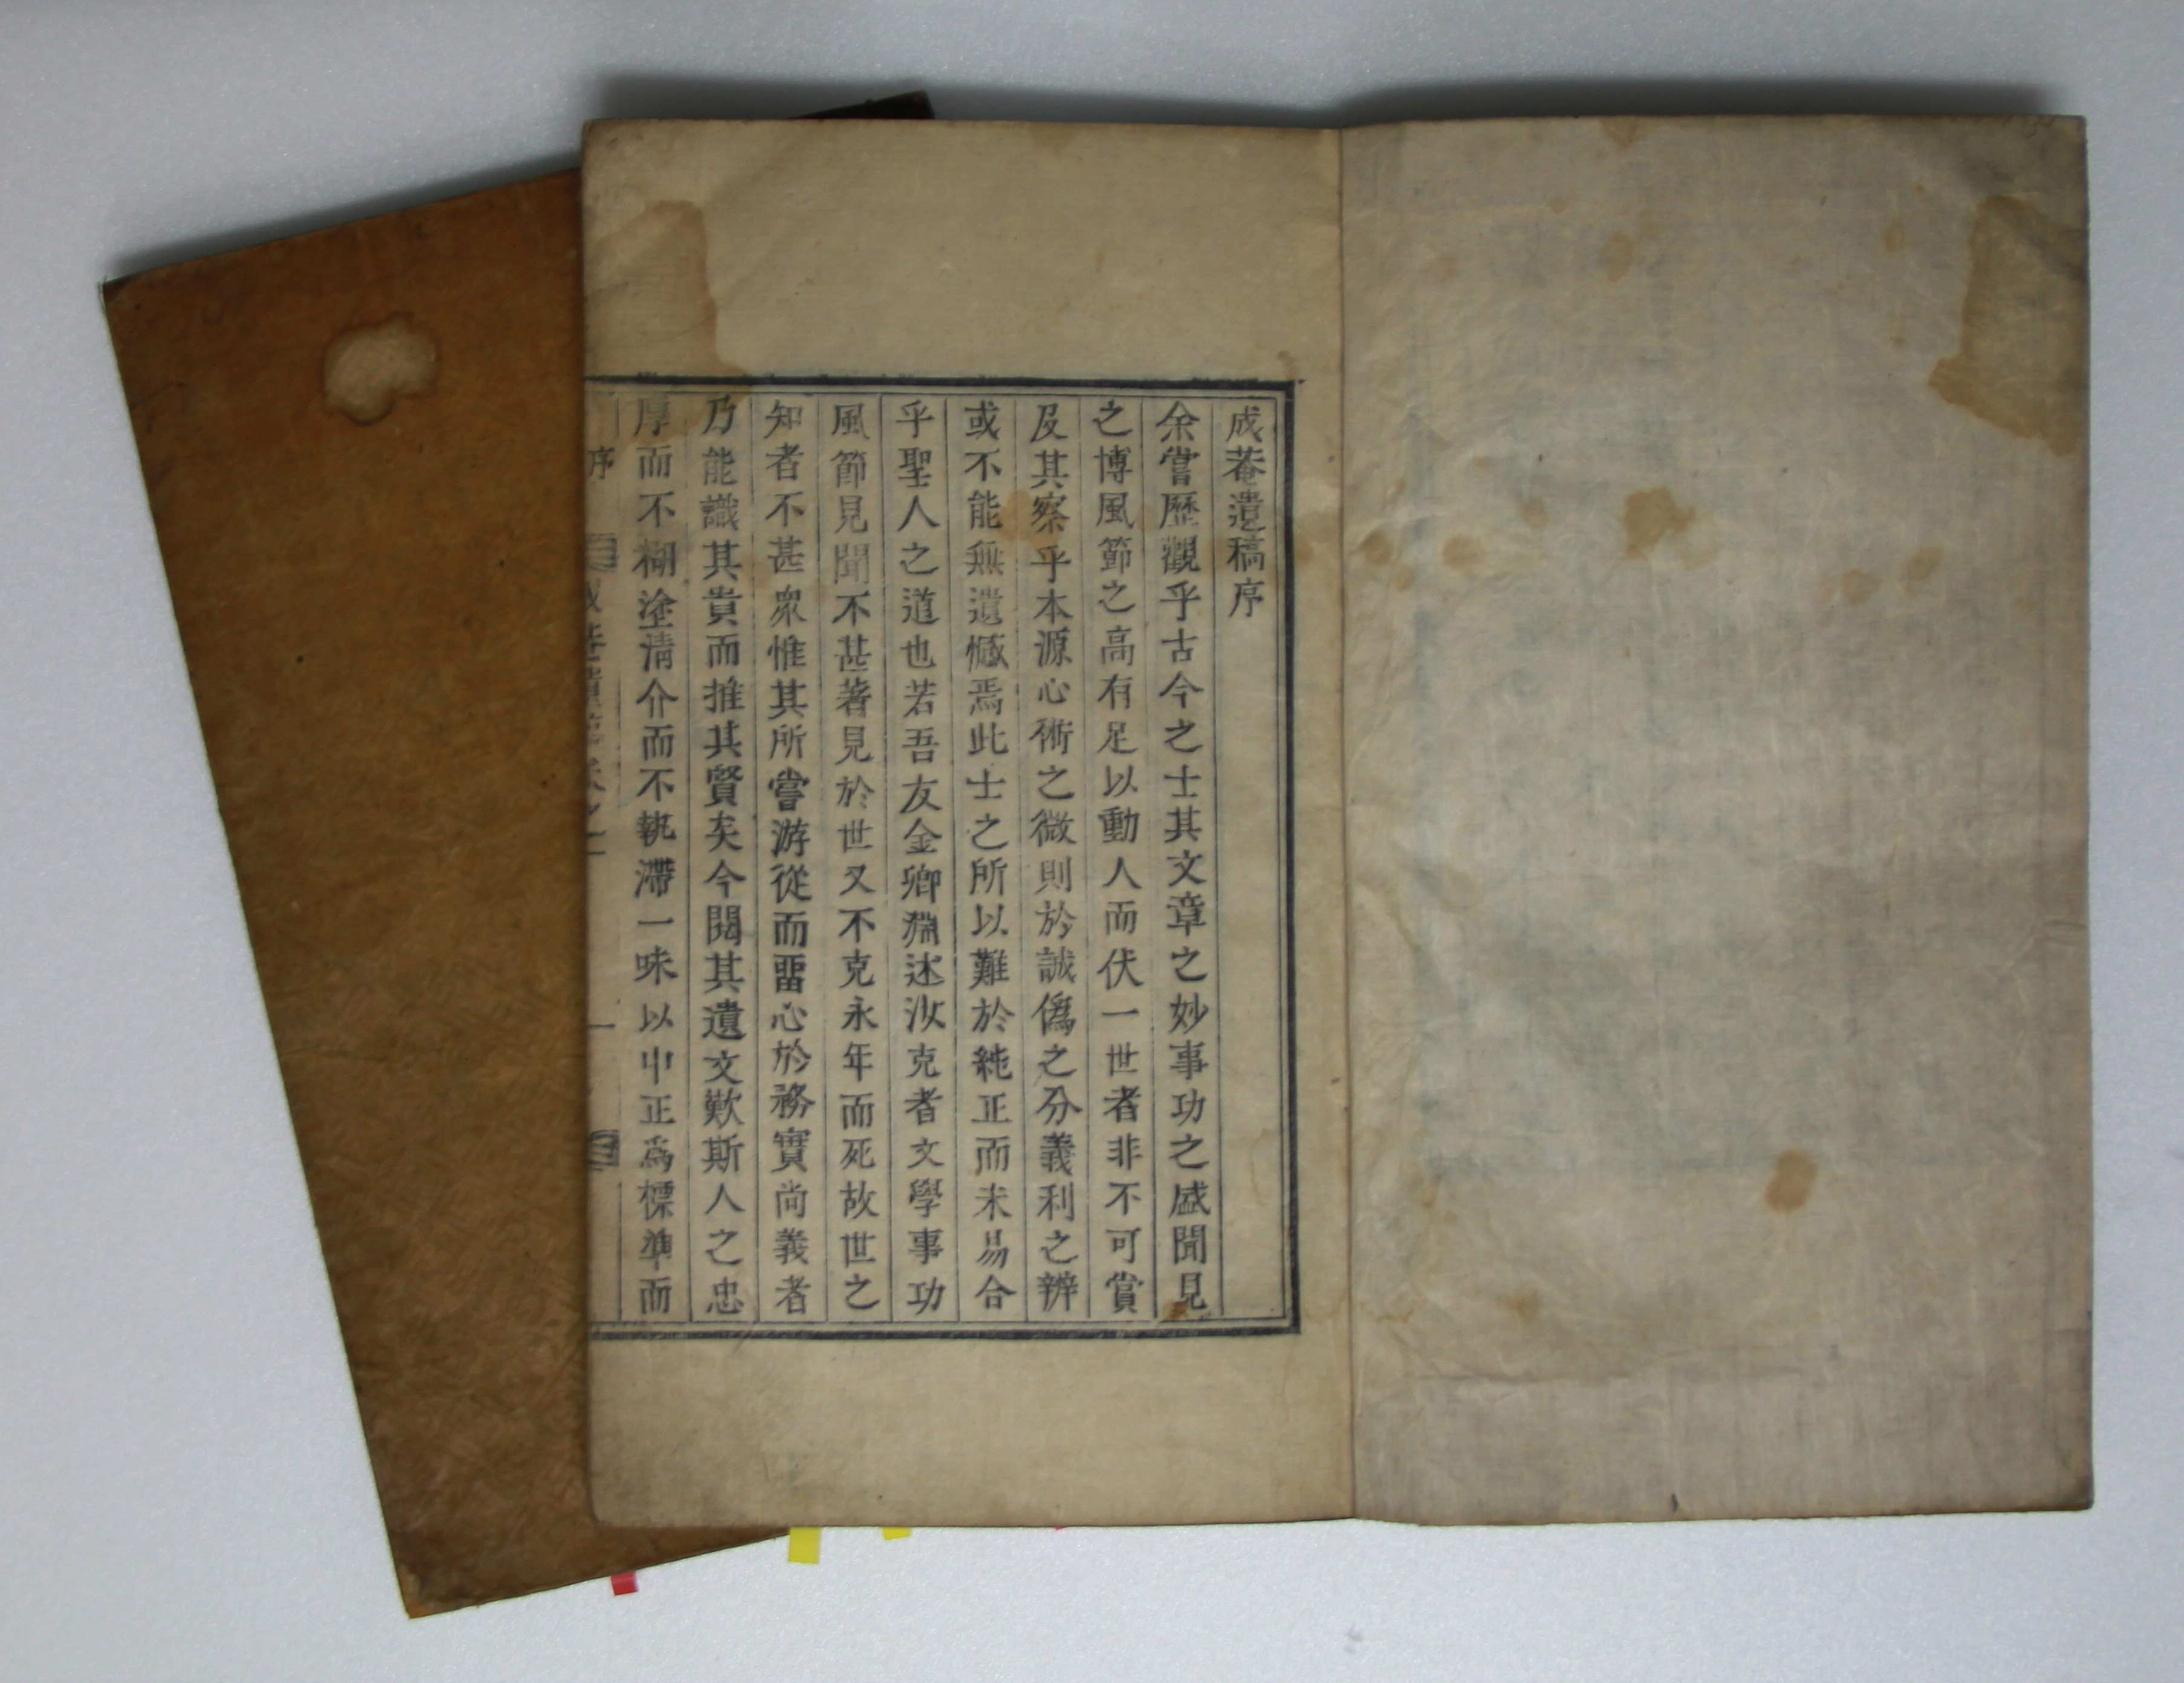 成菴遺稿序
余嘗歷觀乎古今之士其文章之妙事功之盛聞見
之博風節之高有足以動人而伏一世者非不可賞
及其察乎本源心術之微則於誠僞之分義利之辨
或不能無遺憾焉此士之所以難於純正而未易合
乎聖人之道也若吾友金卿淵述汝克者文學事功
風節見聞不甚著見於世又不克永年而死故世之
知者不甚衆惟其所嘗游從而畱心於務實尚義者
乃能識其貴而推其賢矣今閱其遺文歎斯人之忠
厚而不糊塗淸介而不執滯一味以中正爲標準而
序
一